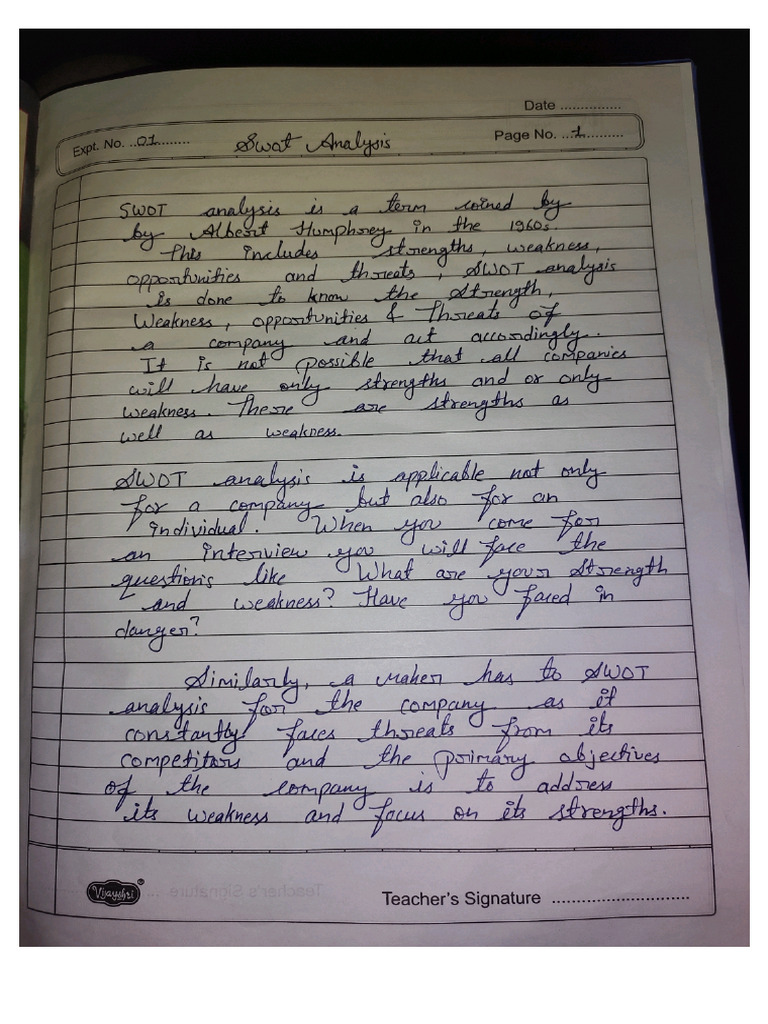 Date ...............
Expt. No. ..01......... Swot Analysis Page No. ...1..........
SWOT analysis is a term coined by
by Albert Humphrey in the 1960s.
This includes strengths, weakness,
opportunities and threats, SWOT analysis
is done to know the Strength,
Weakness, opportunities & Threats of
a company and act accordingly.
It is not possible that all companies
will have only strengths and or only
weakness. There are strengths as
well as weakness.
SWOT analysis is applicable not only
for a company but also for an
individual. When you come for
an interview you will face the
questions like What are your Strength
and weakness? Have you faced in
danger?
Similarly, a maker has to SWOT
analysis for the company as it
constantly faces threats from its
competitors and the primary objectives
of the company is to address
its weakness and focus on its strengths.
Vijayshri ®
Teacher's Signature ..............................